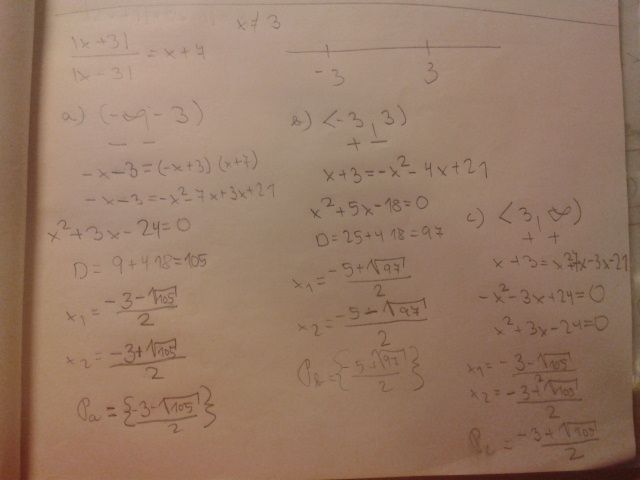 x ≠ 3
|x+3| / |x-3| = x+7
-3 3
a) (-∞, -3)
- -
-x-3=(-x+3)(x+7)
-x-3=-x²-7x+3x+21
x²+3x-24=0
D = 9+4·18=105
x₁ = (-3-√105)/2
x₂ = (-3+√105)/2
Pa = {(-3-√105)/2}
b) <-3, 3)
+ -
x+3=-x²-4x+21
x²+5x-18=0
D=25+4·18=97
x₁ = (-5+√97)/2
x₂ = (-5-√97)/2
Pb = {(-5+√97)/2}
c) <3, ∞)
+ +
x+3=x²+7x-3x-21
-x²-3x+24=0
x²+3x-24=0
x₁ = (-3-√105)/2
x₂ = (-3+√105)/2
Pc = (-3+√105)/2